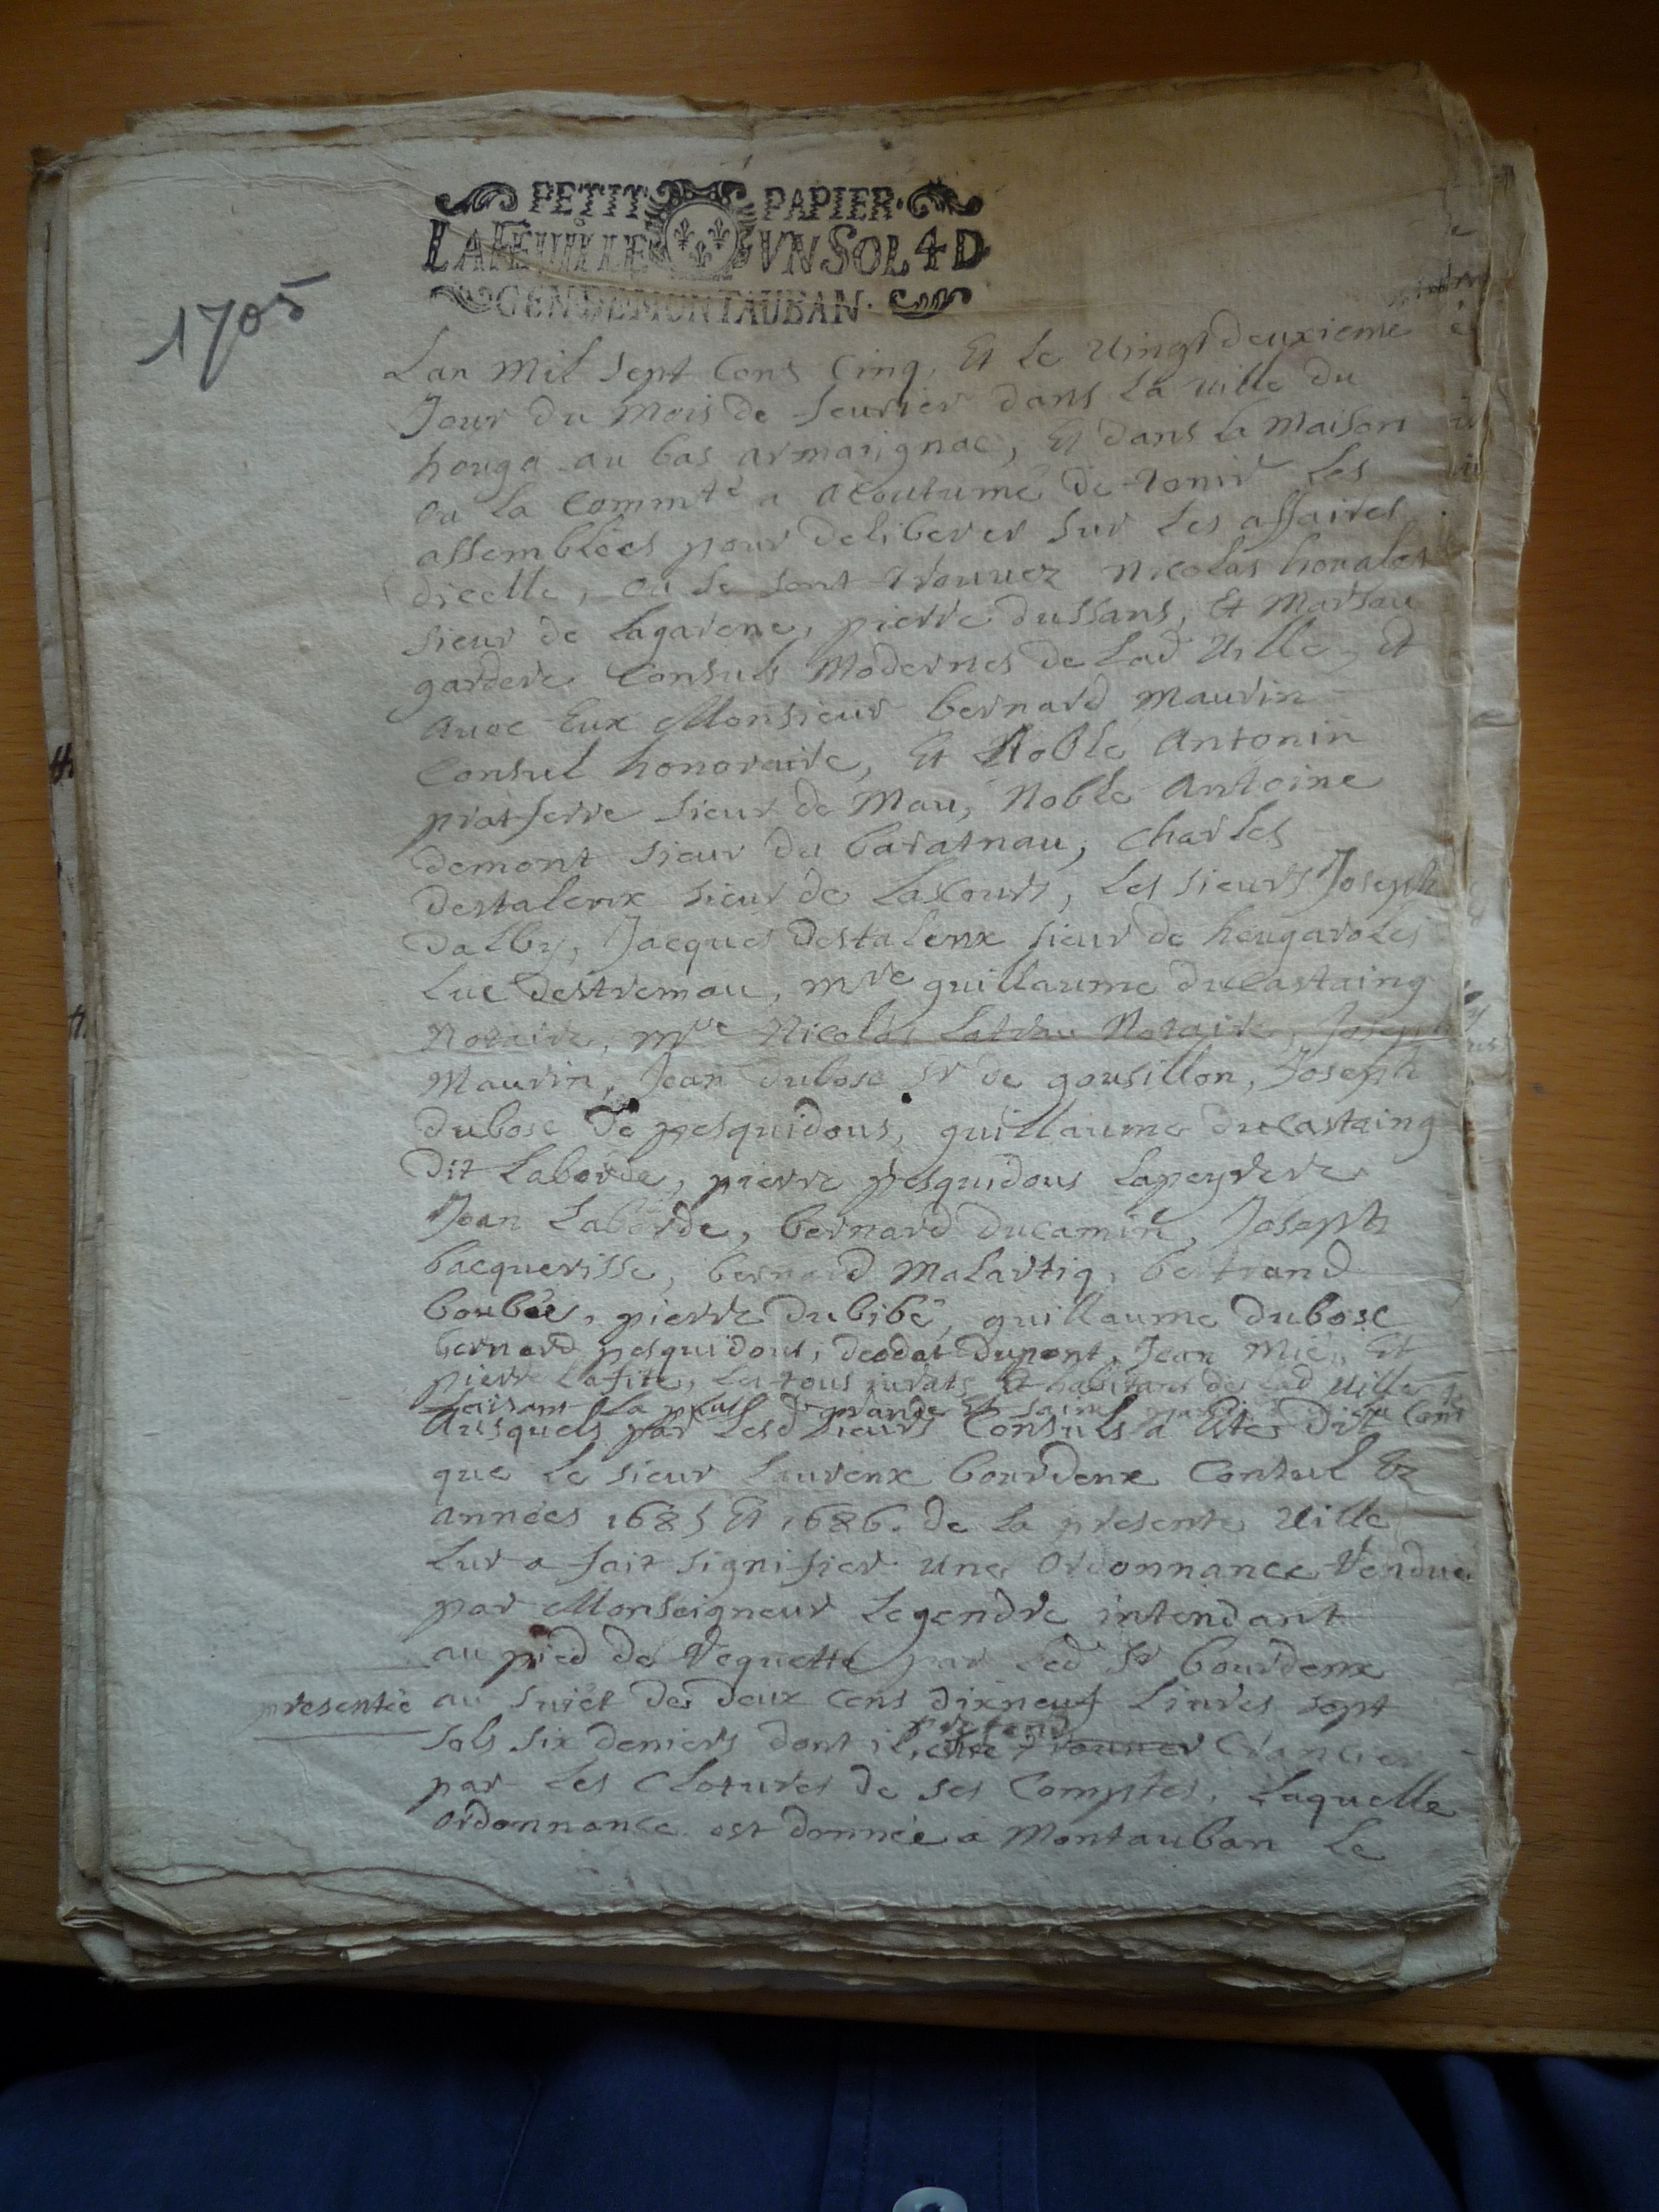 PETIT PAPIER.
LA FEUILLE VN SOL 4 D
GEN DE MONTAUBAN.
1705
Lan mil sept cens cinq, Et le vingt deuxieme
Jour du mois de feurier dans la ville du
houga au bas armaignac, Et dans la maison
ou la commté a acoutumé de tenir les
assemblées pour deliberer sur les affaires
dicelle, ou se sont trouuez nicolas houalet
sieur de lagarene, pierre dussans, Et marsau
gardere consuls modernes de lad ville, et
auec Eux Monsieur bernard maurin
consul honoraire, Et Noble antonin
pratferre sieur de mau, noble antoine
demont sieur du baratnau, charles
destalenx sieur de lascours, les sieurs Joseph
dalby, Jacques destalenx sieur de heugaroles
luc destremau, mre guillaume ducastaing
notaire, mre nicolas latrau notaire, Joseph
maurin, Jean dubosc sr de gousillon, Joseph
dubosc de pesquidous, guillaume ducastaing
dit laborde, pierre pesquidous lapeyrere
Jean laborde, bernard ducamin, Joseph
bacquerisse, bernard malartiq, bertrand
boubée, pierre dubibé, guillaume dubosc
bernard pesquidous, deodat dupont, Jean mié, Et
pierre lafite, les tous jurats Et habitans de lad ville
faisant la plus grande Et saine
Ausquels par lesd sieurs consuls a été dit
que le sieur laurenx bourdenx consul Ez
années 1685 Et 1686. de la presente ville
lur a fait signifier une ordonnance rendue
par Monseigneur legendre intendant
au pied de requette par led sr bourdenx
presentée au suiet des deux cens dixneuf liures sept
sols six deniers dont il pretend etre crancier
par les clotures de ses comptes, laquelle
ordonnance est donnée a montauban le